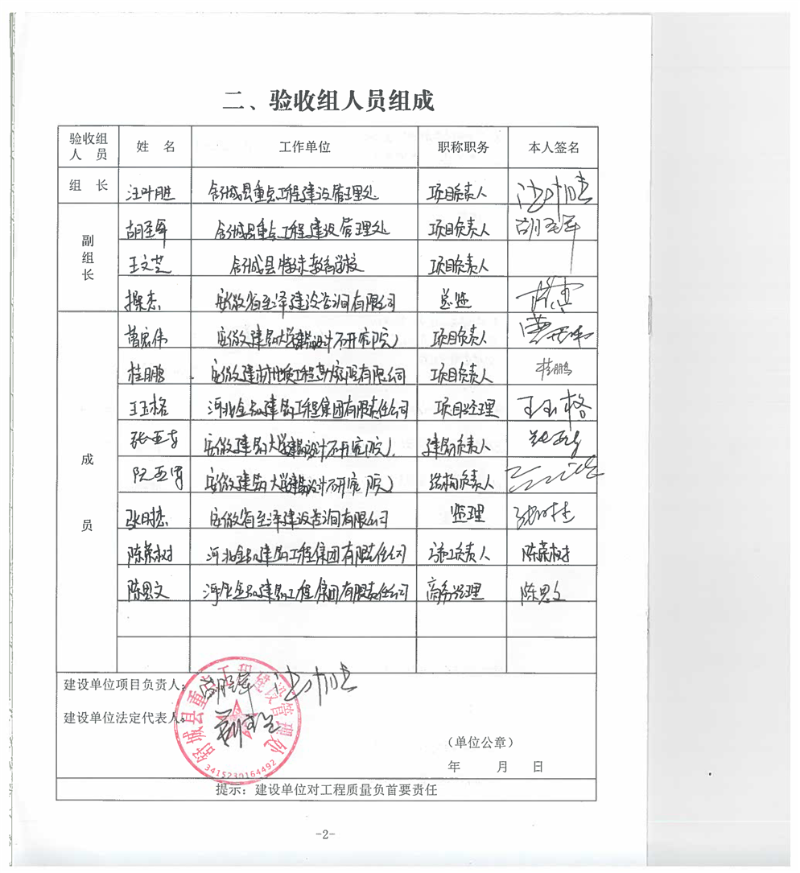 二、验收组人员组成
验收组人员 姓 名 工作单位 职称职务 本人签名
组 长 汪叶胜 舒城县重点工程建设管理处 项目负责人
副组长 胡至军 舒城县重点工程建设管理处 项目负责人
王文芝 舒城县特殊教育学校 项目负责人
操杰 安徽省至泽建设咨询有限公司 总监
成员 曹宏伟 安徽建筑大学建筑设计研究院 项目负责人
桂鹏 安徽建材地质工程勘察院有限公司 项目负责人 桂鹏
王玉格 河北 建筑工程集团有限责任公司 项目经理 王玉格
安徽建筑大学建筑设计研究院 建筑负责人
安徽建筑大学建筑设计研究院 结构负责人
张时杰 安徽省至泽建设咨询有限公司 监理
陈荣树 河北 建筑工程集团有限责任公司 负责人 陈荣树
陈思文 河北 建筑工程集团有限责任公司 商务经理 陈思文
建设单位项目负责人：
建设单位法定代表人：
舒城县重点工程建设管理处
3415230164492
（单位公章）
年 月 日
提示：建设单位对工程质量负首要责任
-2-